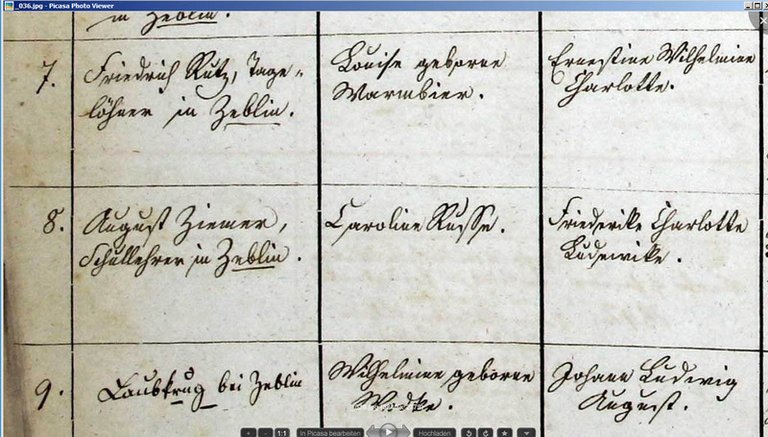 _036.jpg - Picasa Photo Viewer
in Zeblin.
7.
Friedrich Rutz, Tage-
löhner in Zeblin.
Louise geborne
Warmbier.
Ernestine Wilhelmine
Charlotte.
8.
August Ziemer,
Schullehrer in Zeblin.
Caroline Russe.
Friederike Charlotte
Ludewike.
9.
Laubkrug bei Zeblin
Wilhelmine geborne
Wodke.
Johann Ludwig
August.
1:1
In Picasa bearbeiten
Hochladen